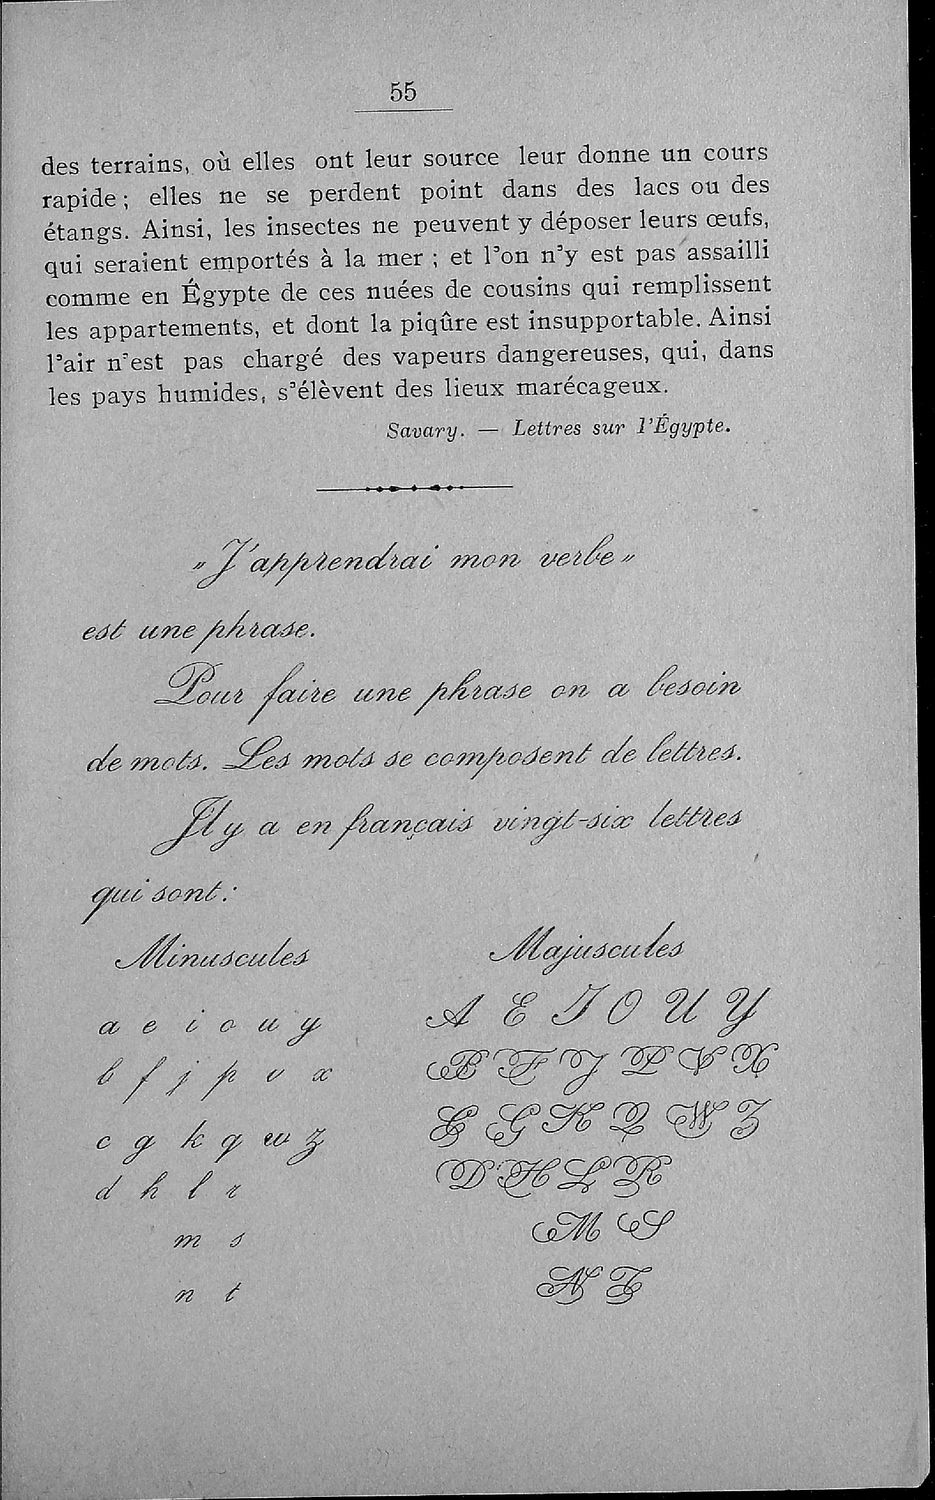 55
des terrains, où elles ont leur source leur donne un cours
rapide; elles ne se perdent point dans des lacs ou des
étangs. Ainsi, les insectes ne peuvent y déposer leurs œufs,
qui seraient emportés à la mer ; et l'on n'y est pas assailli
comme en Égypte de ces nuées de cousins qui remplissent
les appartements, et dont la piqûre est insupportable. Ainsi
l'air n'est pas chargé des vapeurs dangereuses, qui, dans
les pays humides, s'élèvent des lieux marécageux.
Savary. — Lettres sur l'Égypte.
„ J'apprendrai mon verbe „
est une phrase.
Pour faire une phrase on a besoin
de mots. Les mots se composent de lettres.
Il y a en français vingt-six lettres
qui sont :
Minuscules
a e i o u y
b f j p v x
c g k q w z
d h l r
m s
n t
Majuscules
A E I O U Y
B F J P V X
C G K Q W Z
D H L R
M S
N T